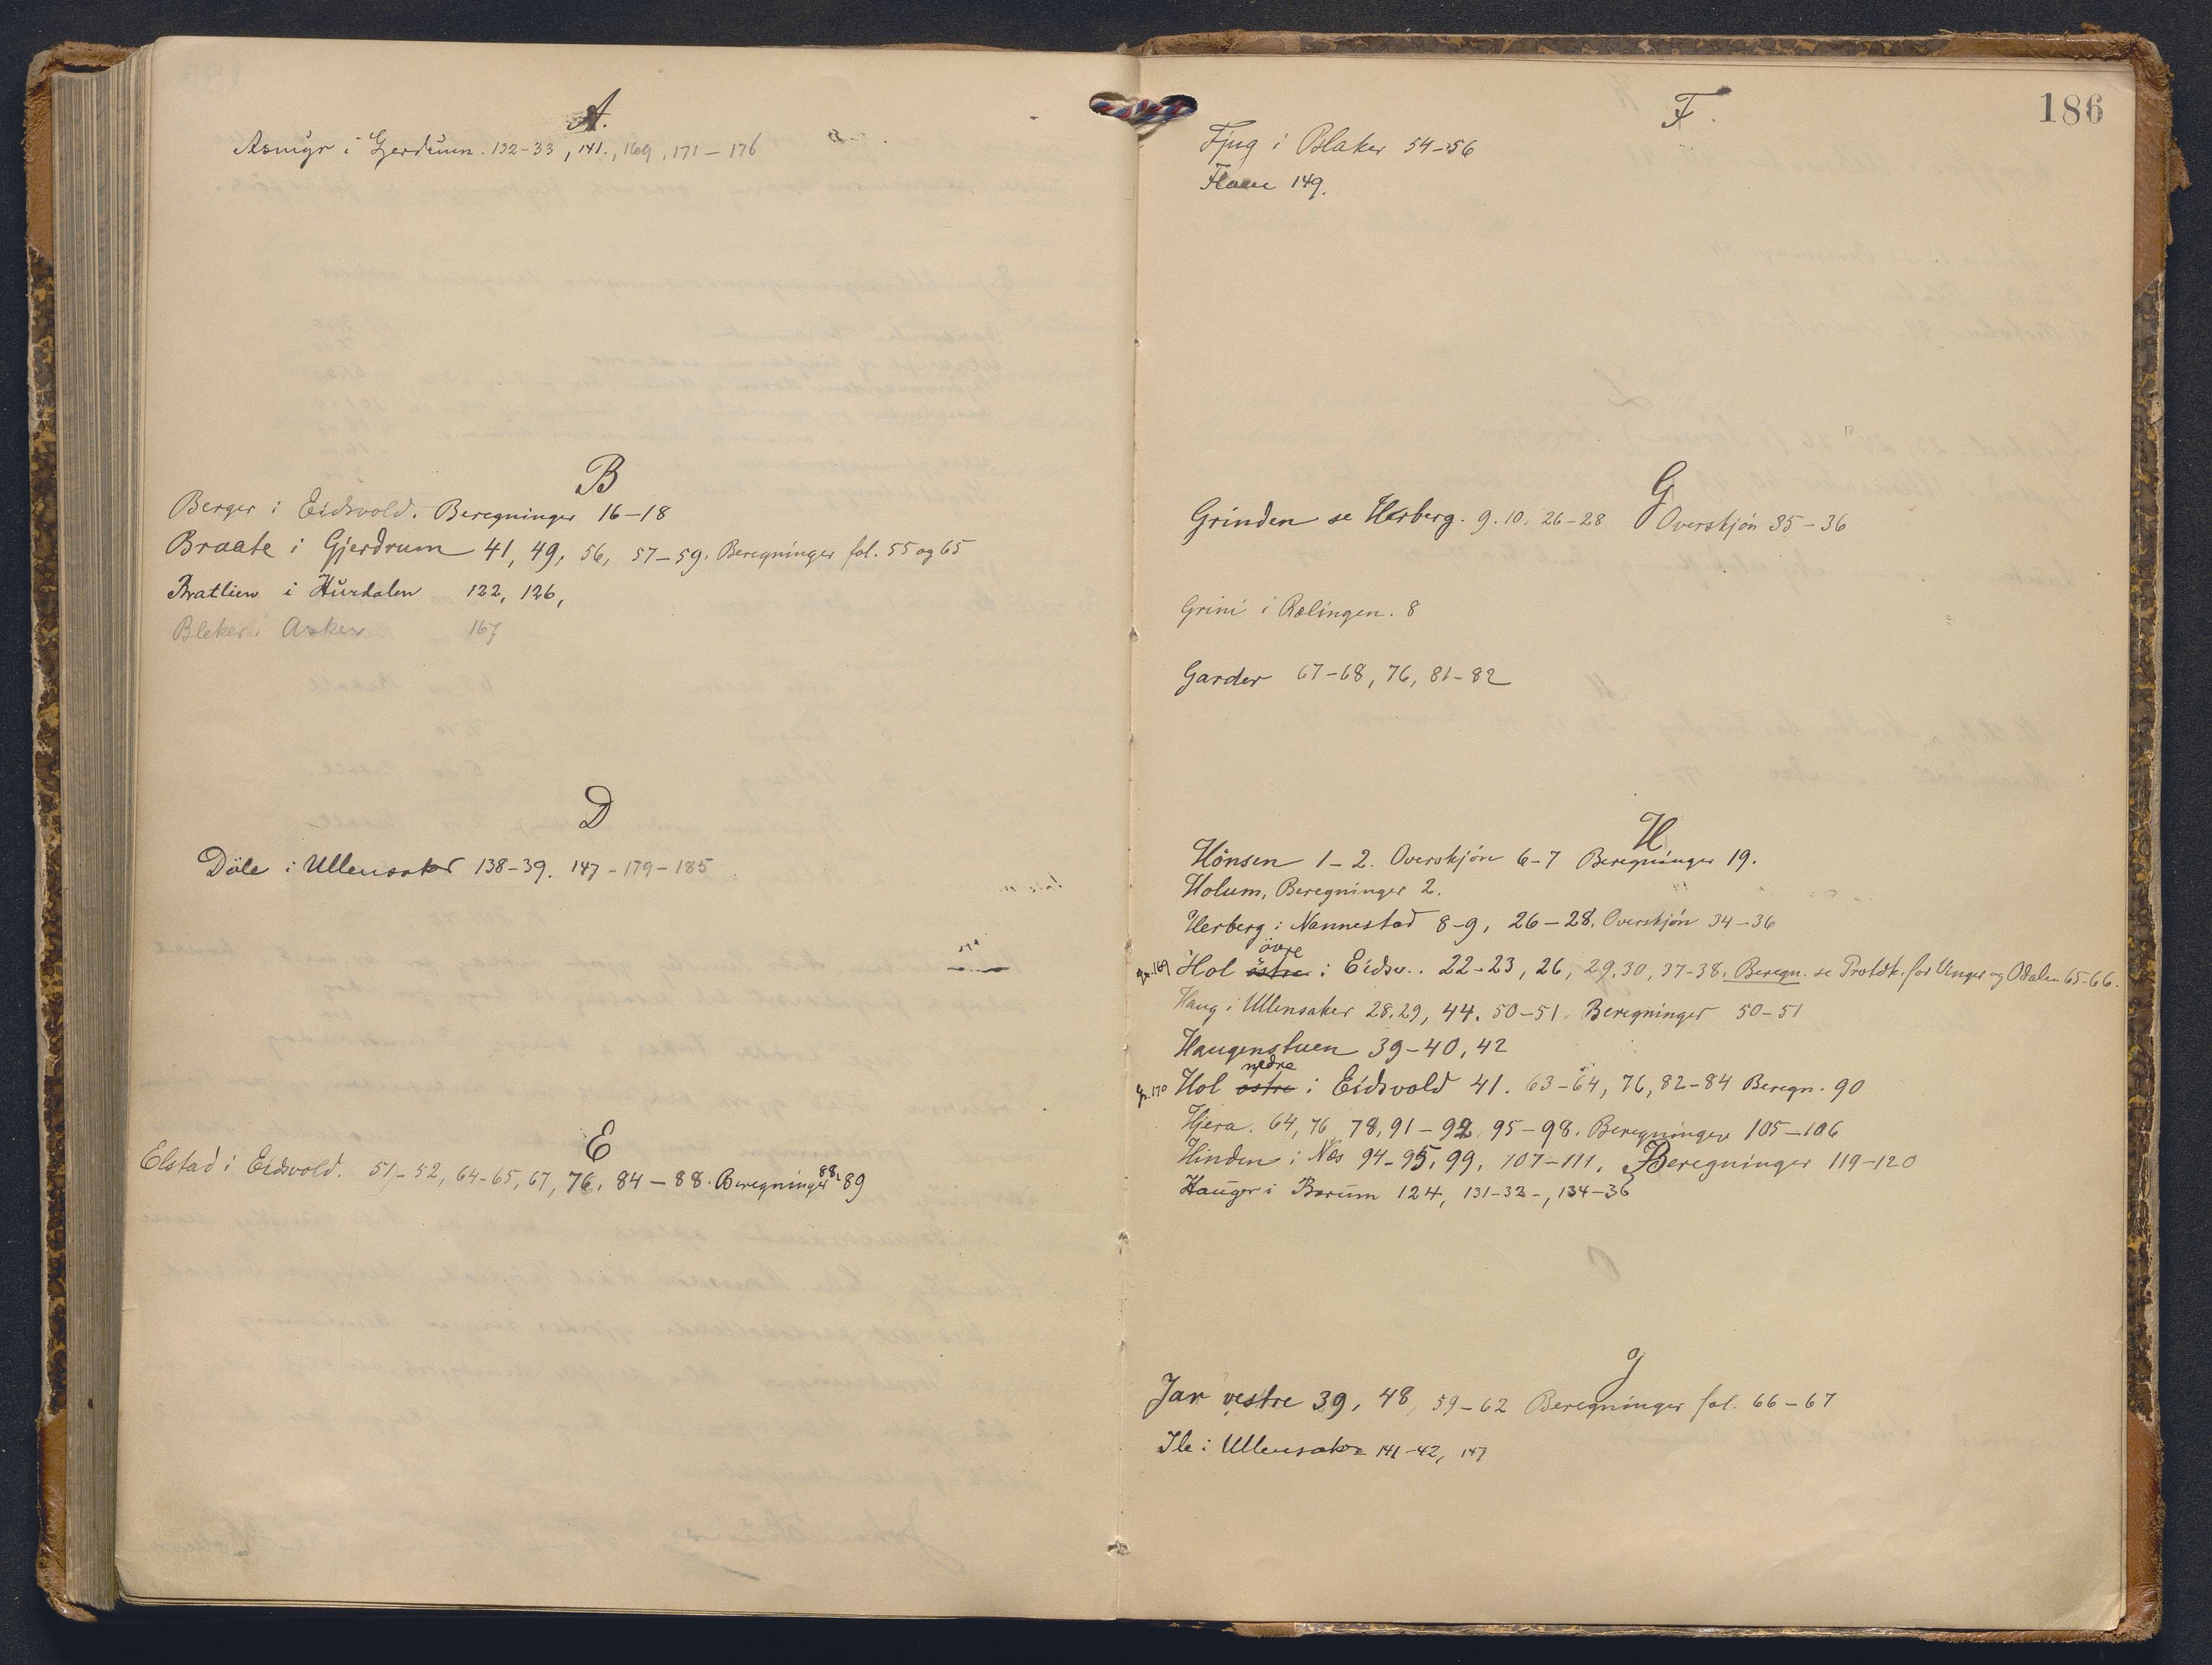 A.
Asmyr i Gjerdrum. 132-33, 141., 169, 171-176
B
Berger i Eidsvold. Beregninger 16-18
Braate i Gjerdrum 41, 49, 56, 57-59. Beregninger fol. 55 og 65
Bratlien i Hurdalen 122, 126,
Bleker i Asker 167
D
Döle i Ullensaker 138-39. 147-179-185
E
Elstad i Eidsvold. 51-52, 64-65, 67, 76, 84-88. Beregninger 88-89
186
F.
Fjug i Blaker 54-56
149.
G
Grinden se Herberg. 9.10. 26-28 Overskjön 35-36
Grini i Rælingen. 8
Garder 67-68, 76, 81-82
H
Hönsen 1-2. Overskjön 6-7 Beregninger 19.
Holum, Beregninger 2.
Herberg i Nannestad 8-9, 26-28. Overskjön 34-36
övre
gr. 169 Hol östre i Eidsv.. 22-23, 26, 29.30, 37-38. Beregn. se Protok. for Vinger og Odalen 65-66.
Haug i Ullensaker 28.29, 44. 50-51. Beregninger 50-51
Haugenstuen 39-40, 42
nedre
gr. 170 Hol östre i Eidsvold 41. 63-64, 76, 82-84 Beregn. 90
Hjera. 64, 76 78, 91-92, 95-98. Beregninger 105-106
Hinden i Næs 94-95, 99, 107-111. Beregninger 119-120
Hauger i Bærum 124, 131-32-, 134-36
J
Jar vestre 39, 48, 59-62 Beregninger fol. 66-67
Ile i Ullensaker 141-42, 147